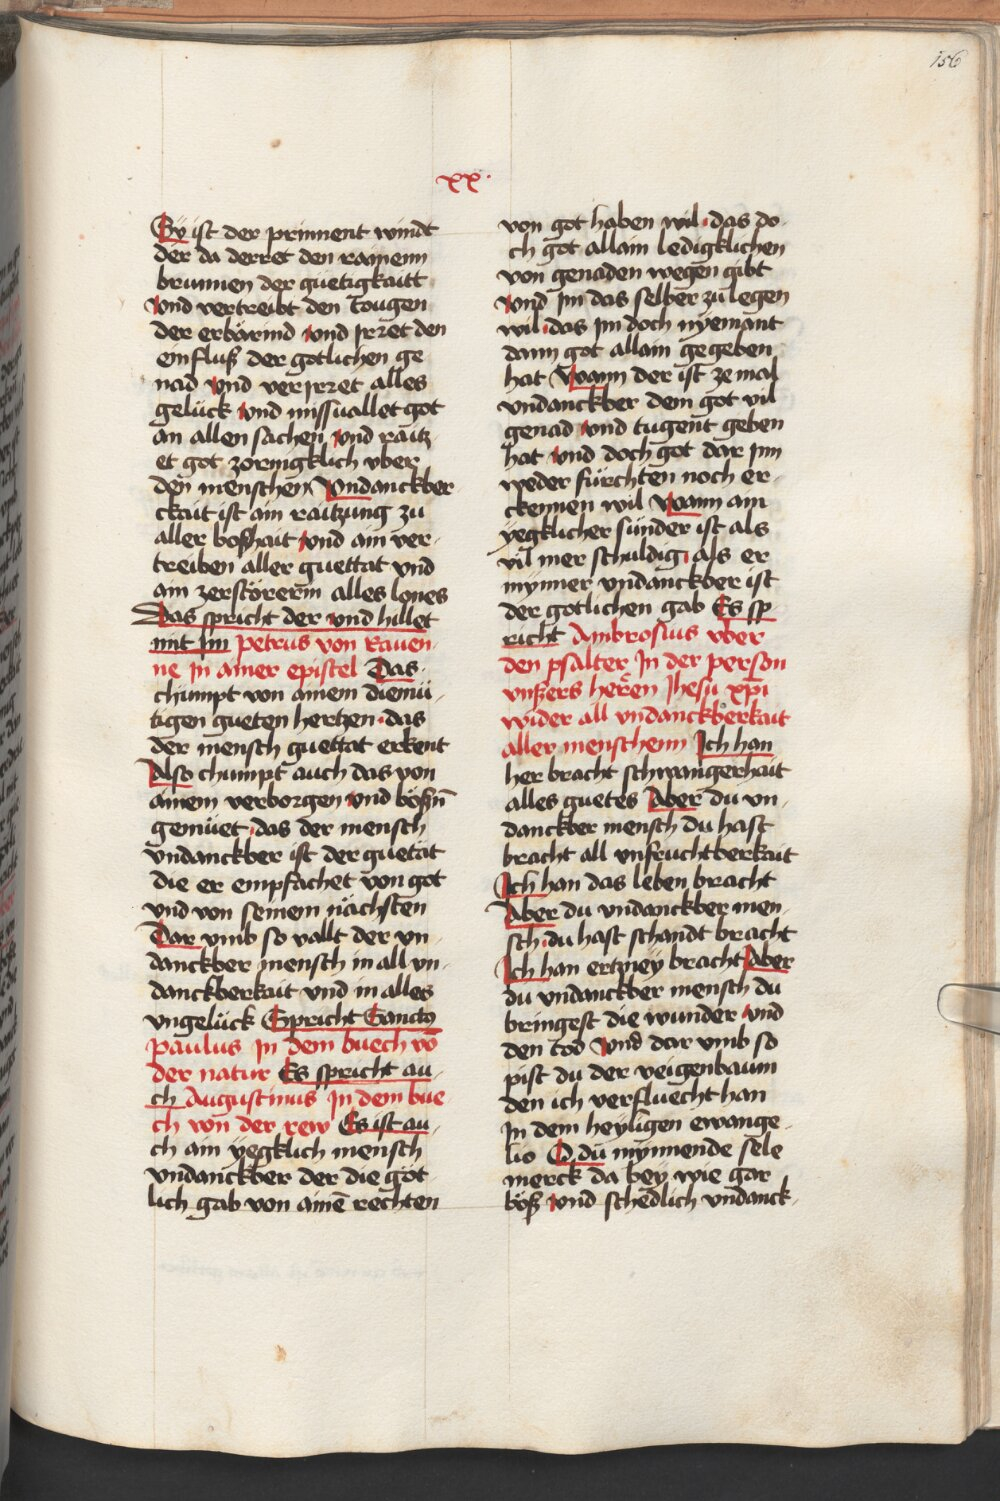 156
xx.
Sÿ ist der prinnent windt
der da derret den rainenn
brunnen der güetigkaitt
vnd vertreibt den tougen
der erbärmd vnd jrret den
einfluß der gotlichen ge
nad vnd verjrret alles
gelück vnd missuallet got
an allen sachen vnd raitz
et got zornigklich vber
den menschen Vndanckber
ckait ist ain raitzung zu
aller boßhait vnd ain ver-
treiben aller guettat vnd
ain zerstörerin alles lones
Das spricht der vnd hillet
mit jm petrus von rauen-
ne jn ainer epistel Das
chümpt von ainem diemü-
tigen gueten hertzen · das
der mensch guettat erkent
Also chumpt auch das von
ainem verborgen vnd bösen
gemüet · das der mensch
vndanckber ist der guetat
die er empfachet von got
vnd von seinem nächsten
Dar vmb so vallt der vn-
danckber mensch in all vn-
danckberkait vnd in alles
vngelück Spricht Sanctus
paulus jn dem buech vō
der natur Es spricht au-
ch Augustinus jn dem bue
ch von der rew Es ist au-
ch ain yegklich mensch
vndanckber der die göt-
lich gab von ainē rechten
von got haben wil · das do-
ch got allain ledigklichen
von genaden wegen gibt
vnd jm das selber zu legen
wil · das jm doch nyemant
dann got allain gegeben
hat Wann der ist ze mal
vndanckber dem got vil
genad vnd tugent geben
hat vnd doch got dar jnn
weder fürchten noch er-
ckennen wil Wann ain
yegklicher sünder ist als
vil mer schuldig · als er
mynner vndanckber ist
der gotlichen gab Es sp-
richt Ambrosius vber
den psalter jn der person
vnßers herren Jhesu xpi
wider all vndanckberkait
aller menschenn Ich han
her bracht schwangerhait
alles guetes Aber du vn-
danckber mensch du hast
bracht all vnfruchtberkait
Ich han das leben bracht
Aber du vndanckber men-
sch · du hast schandt bracht
Ich han ertzney bracht Aber
du vndanckber mensch du
bringest die wunder vnd
den tod Vnd dar vmb so
pist du der veigenbaum
den ich verfluecht han
jn dem heyligen ewange-
lio O du mynnende sele
merck da bey wie gar
böß vnd schedlich vndanck-